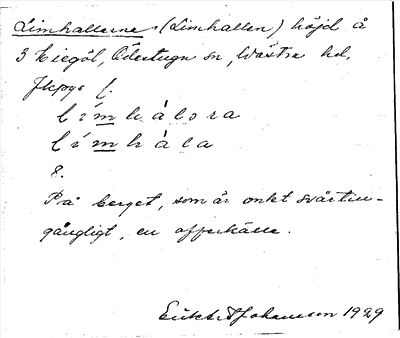 Limhallarne (Limhallen) höjd å
3 Ekegöl, Ödestugu sn, Västra hd,
Jkpgs l.
lìmhálora
lìmhála
8.
På berget, som är omkr svårtill-
gängligt, en offerkälla.
Erik A Johansson 1929